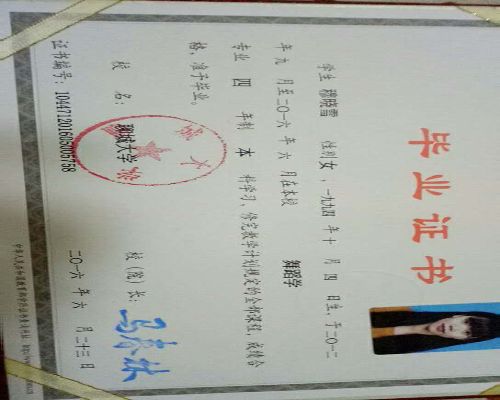 毕业证书
学生 穆晓雪 性别 女，一九九四 年 十 月 四 日生，于二〇一二
年 九 月至二〇一六 年 六 月在本校 舞蹈学
专业 四 年制 本 科学习，修完教学计划规定的全部课程，成绩合
格，准予毕业。
校 名： 聊城大学 校（院）长：
证书编号：104471201605006758 二〇一六 年 六 月 二十三 日